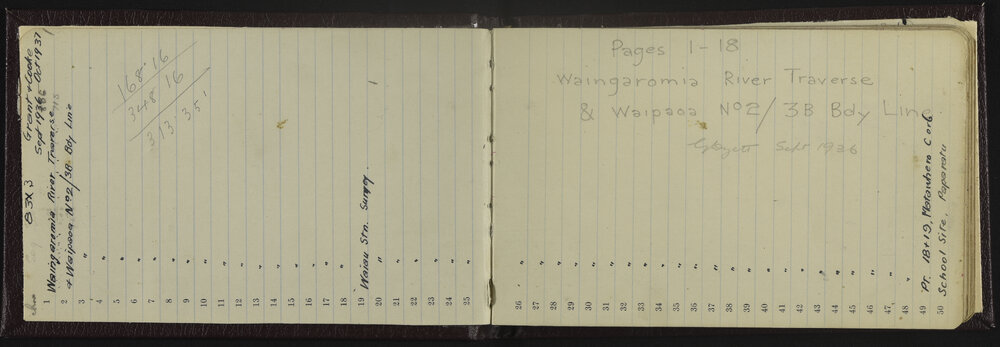 83X3 Grant & Cooke
Sept 1936 - Oct 1937
1 Waingaromia River Traverse
2 & Waipaoa No2/3B Bdy Line
3 "
4 "
5 "
6 "
7 "
8 "
9 "
10 "
11 "
12 "
13 "
14 "
15 "
16 "
17 "
18 "
19 Waiau Stn. Survey
20 "
21 "
22 "
23 "
24 "
25 "
168·16
348 16
313·35'
Pages 1-18
Waingaromia River Traverse
& Waipaoa No2/3B Bdy Line
Sept 1936
26 "
27 "
28 "
29 "
30 "
31 "
32 "
33 "
34 "
35 "
36 "
37 "
38 "
39 "
40 "
41 "
42 "
43 "
44 "
45 "
46 "
47 "
48 "
49 Pt. 18+19, Matawhero C & B
50 School Site, Paparatu